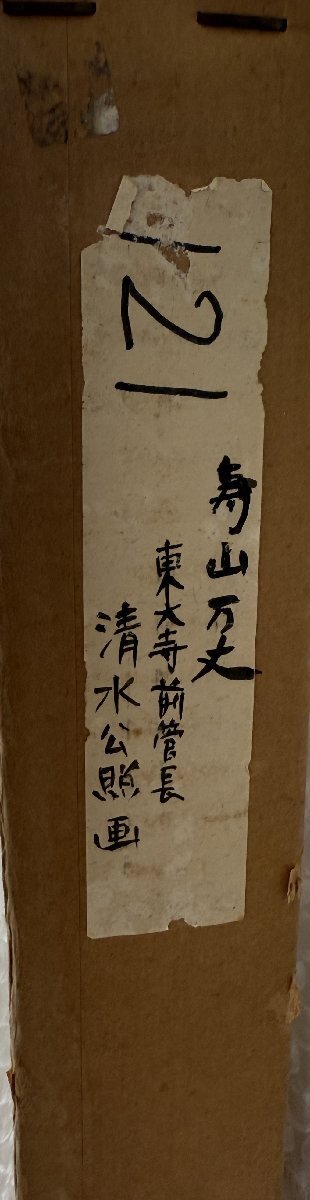 121
寿山万丈
東大寺前管長
清水公照画